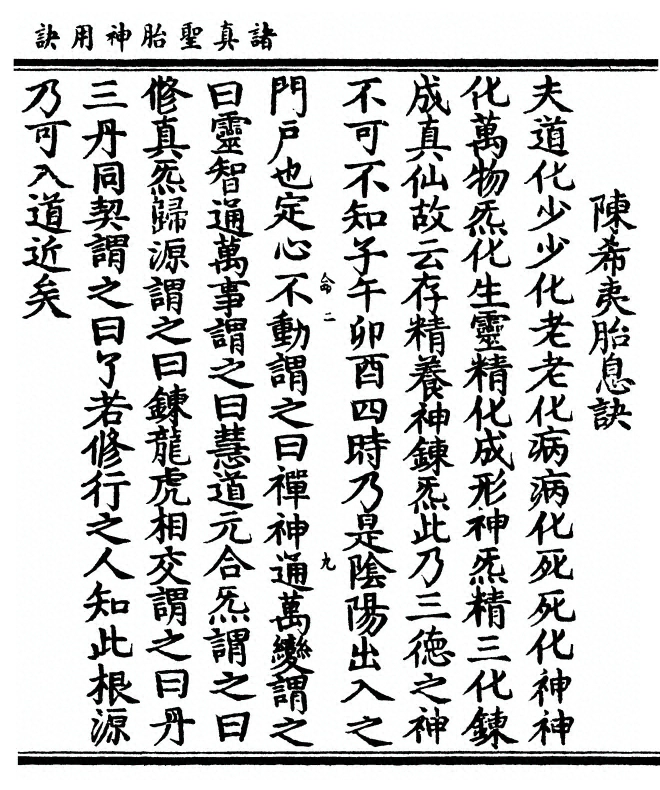 諸真聖胎神用訣
陳希夷胎息訣
夫道化少少化老老化病病化死死化神神
化萬物炁化生靈精化成形神炁精三化鍊
成真仙故云存精養神鍊炁此乃三德之神
不可不知子午卯酉四時乃是陰陽出入之
命二 九
門戶也定心不動謂之曰禪神通萬變謂之
曰靈智通萬事謂之曰慧道元合炁謂之曰
修真炁歸源謂之曰鍊龍虎相交謂之曰丹
三丹同契謂之曰了若修行之人知此根源
乃可入道近矣